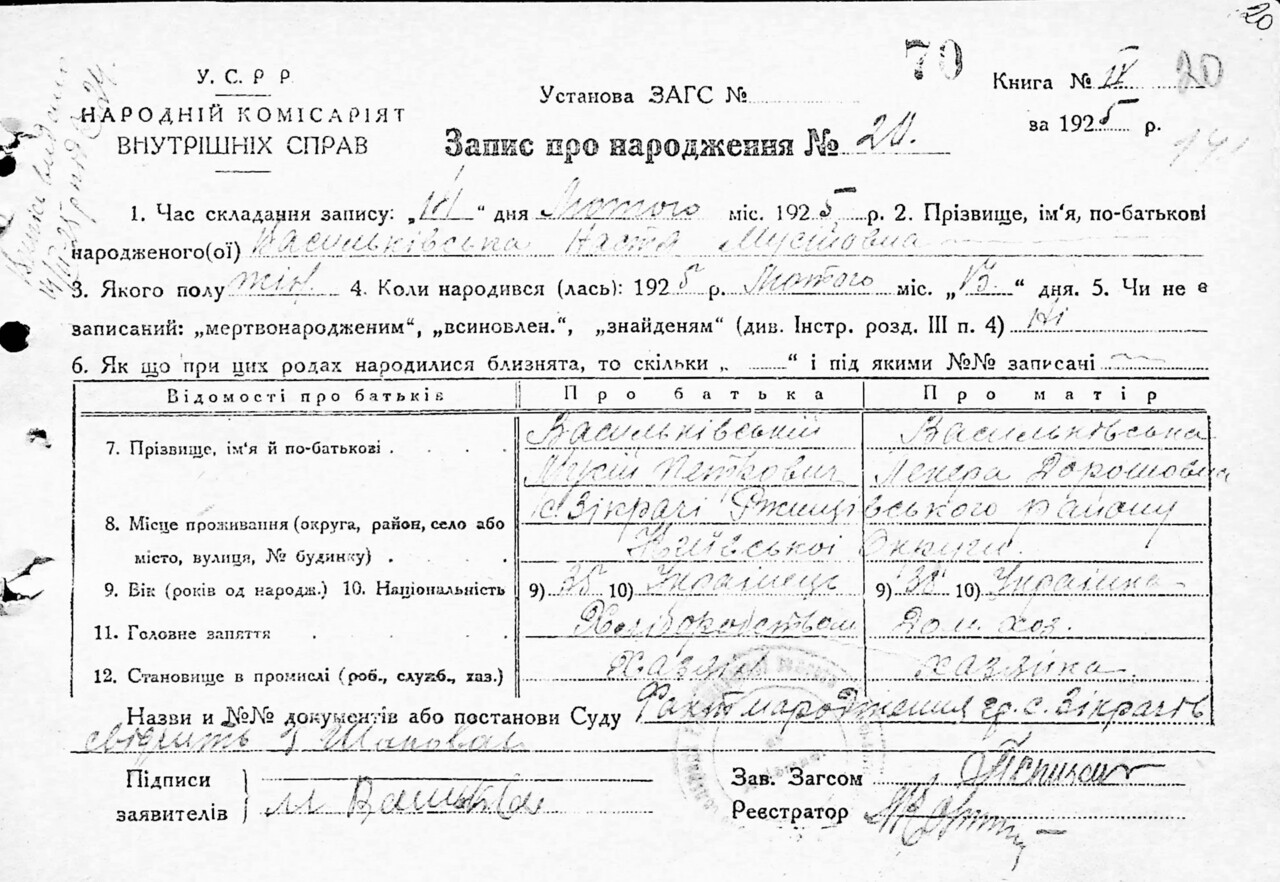 20
У. С. Р Р.
НАРОДНІЙ КОМІСАРІЯТ
ВНУТРІШНІХ СПРАВ
70
Установа ЗАГС №
Книга № IV 20
за 1925 р.
Запис про народження № 20.
1. Час складання запису: „14“ дня Лютого міс. 1925 р. 2. Прізвище, ім'я, по-батькові
народженого(ої) Васильківська Настя Мусіївна
3. Якого полу жін. 4. Коли народився (лась): 1925 р. Лютого міс. „13.“ дня. 5. Чи не є
записаний: „мертвонародженим“, „всиновлен.“, „знайденям“ (див. Інстр. розд. III п. 4) Ні
6. Як що при цих родах народилися близнята, то скільки „ “ і під якими №№ записані
Відомості про батьків Про батька Про матір
7. Прізвище, ім'я й по-батькові . . . . Васильківський Васильківська
Мусій Петрович Лекера Дорошовна
8. Місце проживання (округа, район, село або с. Зікрачі Ржищівського району
місто, вулиця, № будинку) . . Київської Округи.
9. Вік (років од народж.) 10. Національність 9) 35 10) Українець 9) 38 10) Українка
11. Головне заняття . . . . Хліборобством Дом. хоз.
12. Становище в промислі (роб., служб., хаз.) Хазяїн хазяйка
Назви и №№ документів або постанови Суду Факт народження гр. с. Зікрачів
свідчить Шаповал
Підписи
заявителів
М
Зав. Загсом
Реєстратор